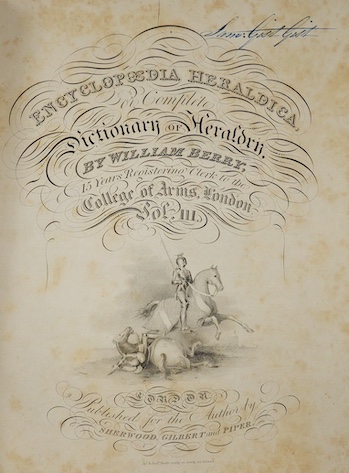 ENCYCLOPŒDIA HERALDICA,
or Complete
Dictionary OF Heraldry,
BY WILLIAM BERRY,
15 Years Registering Clerk to the
College of Arms, London
Vol. III.
LONDON
Published for the Author by
SHERWOOD, GILBERT and PIPER.